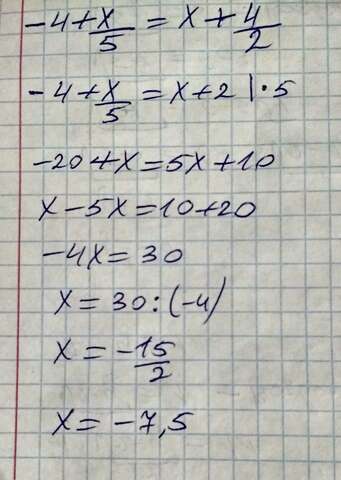 -4+x/5=x+4/2
-4+x/5=x+2|·5
-20+x=5x+10
x-5x=10+20
-4x=30
x=30:(-4)
x=-15/2
x=-7,5